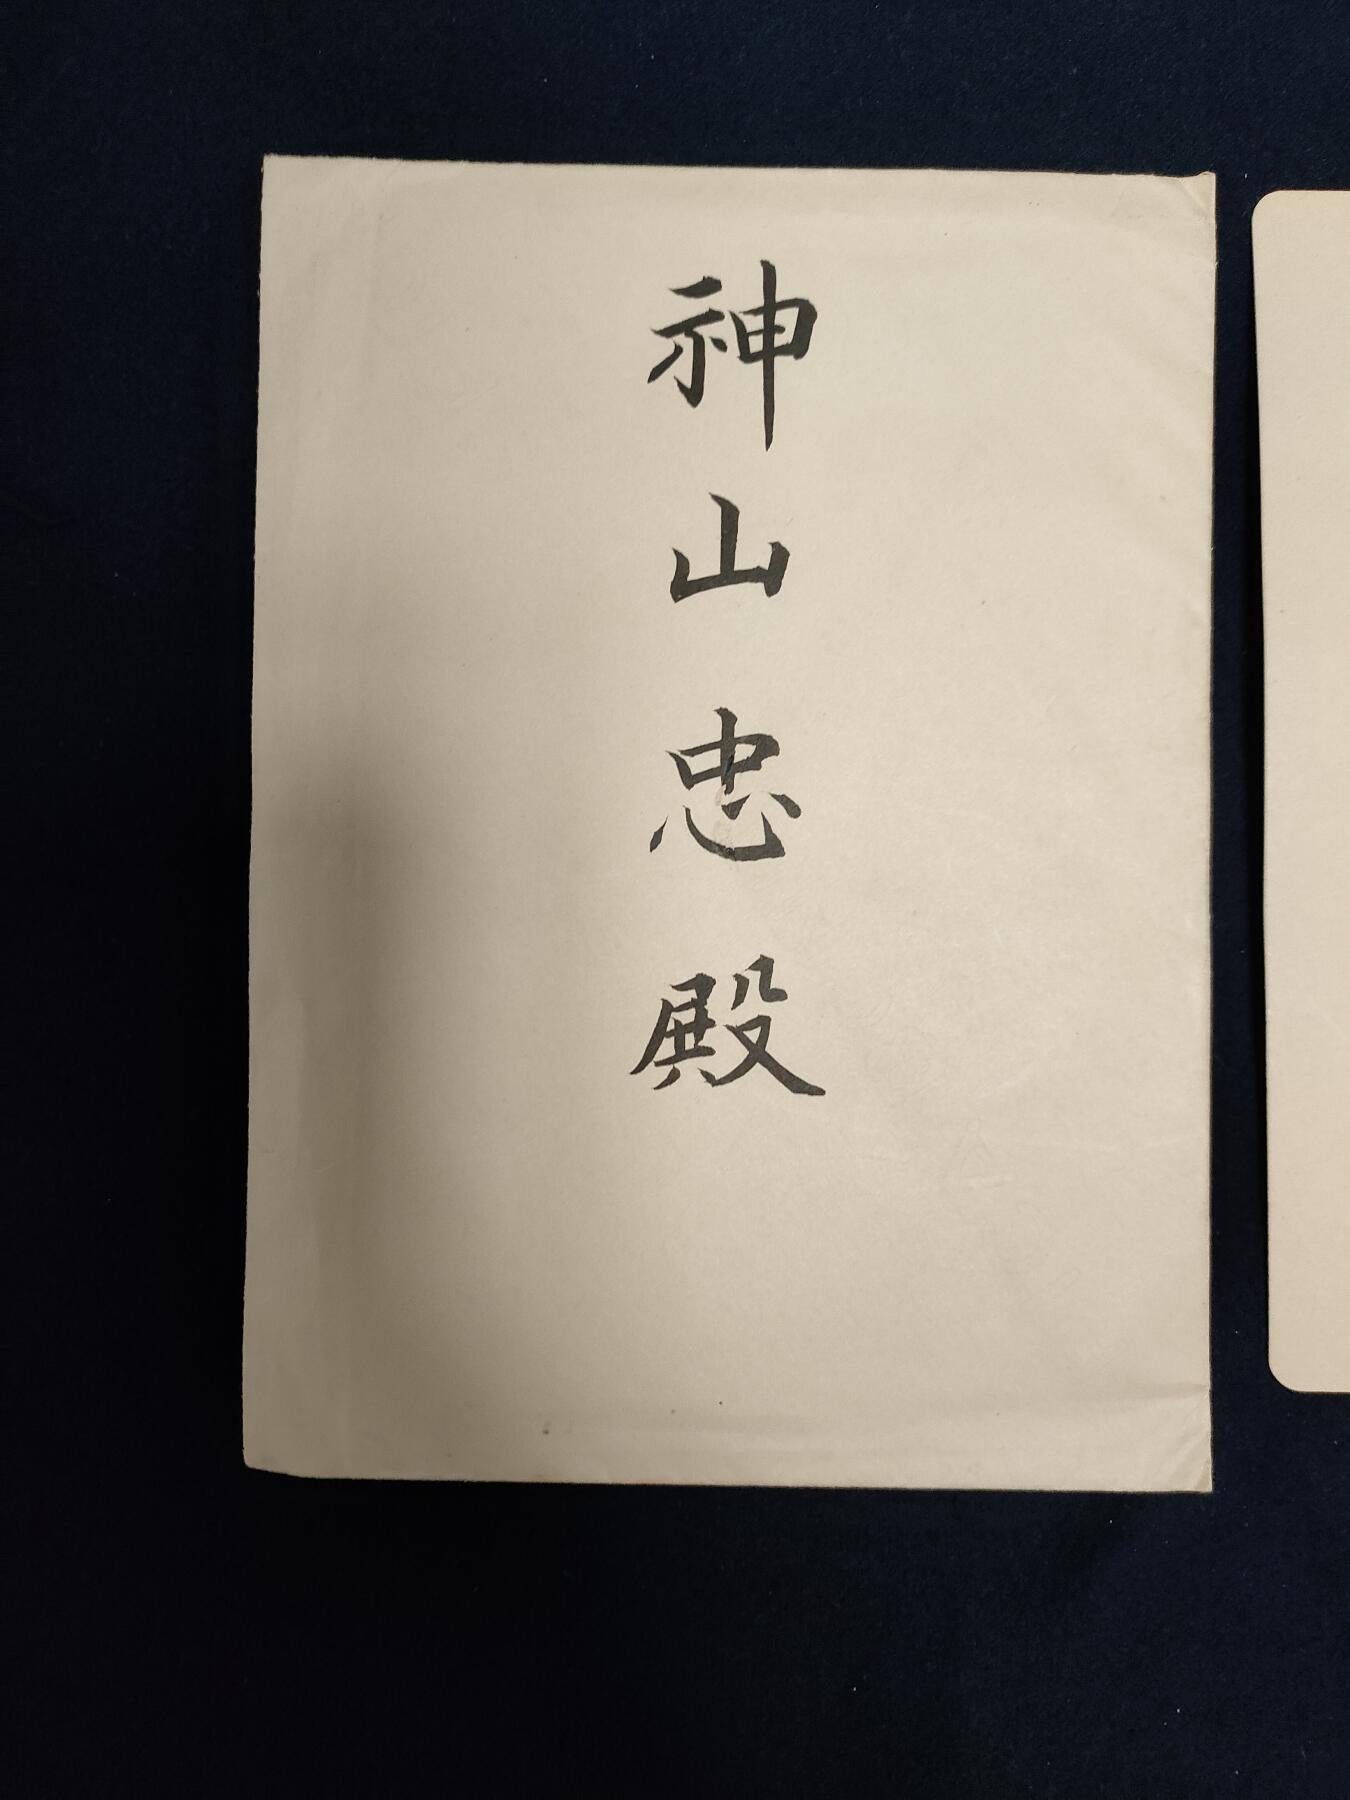 神山忠殿